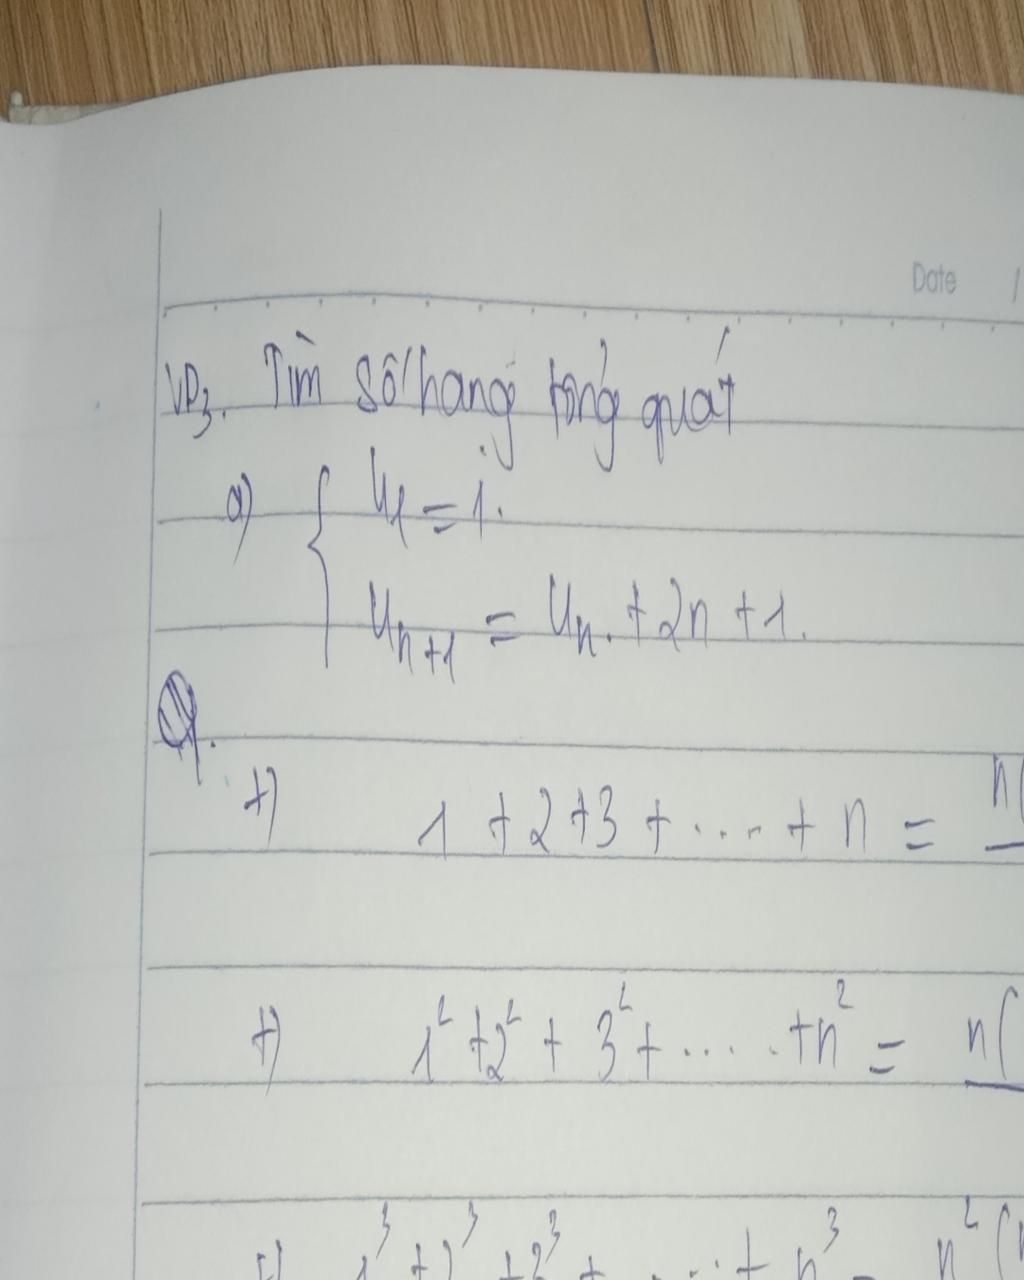 Date
VD3. Tìm số hạng tổng quát
a) { u1 = 1.
un+1 = un. + 2n + 1.
+) 1 + 2 + 3 + .... + n = n(
+) 1² + 2² + 3² + ..... + n² = n(
+) 1³ + 2³ + 3³ + .... + n³ = n² (